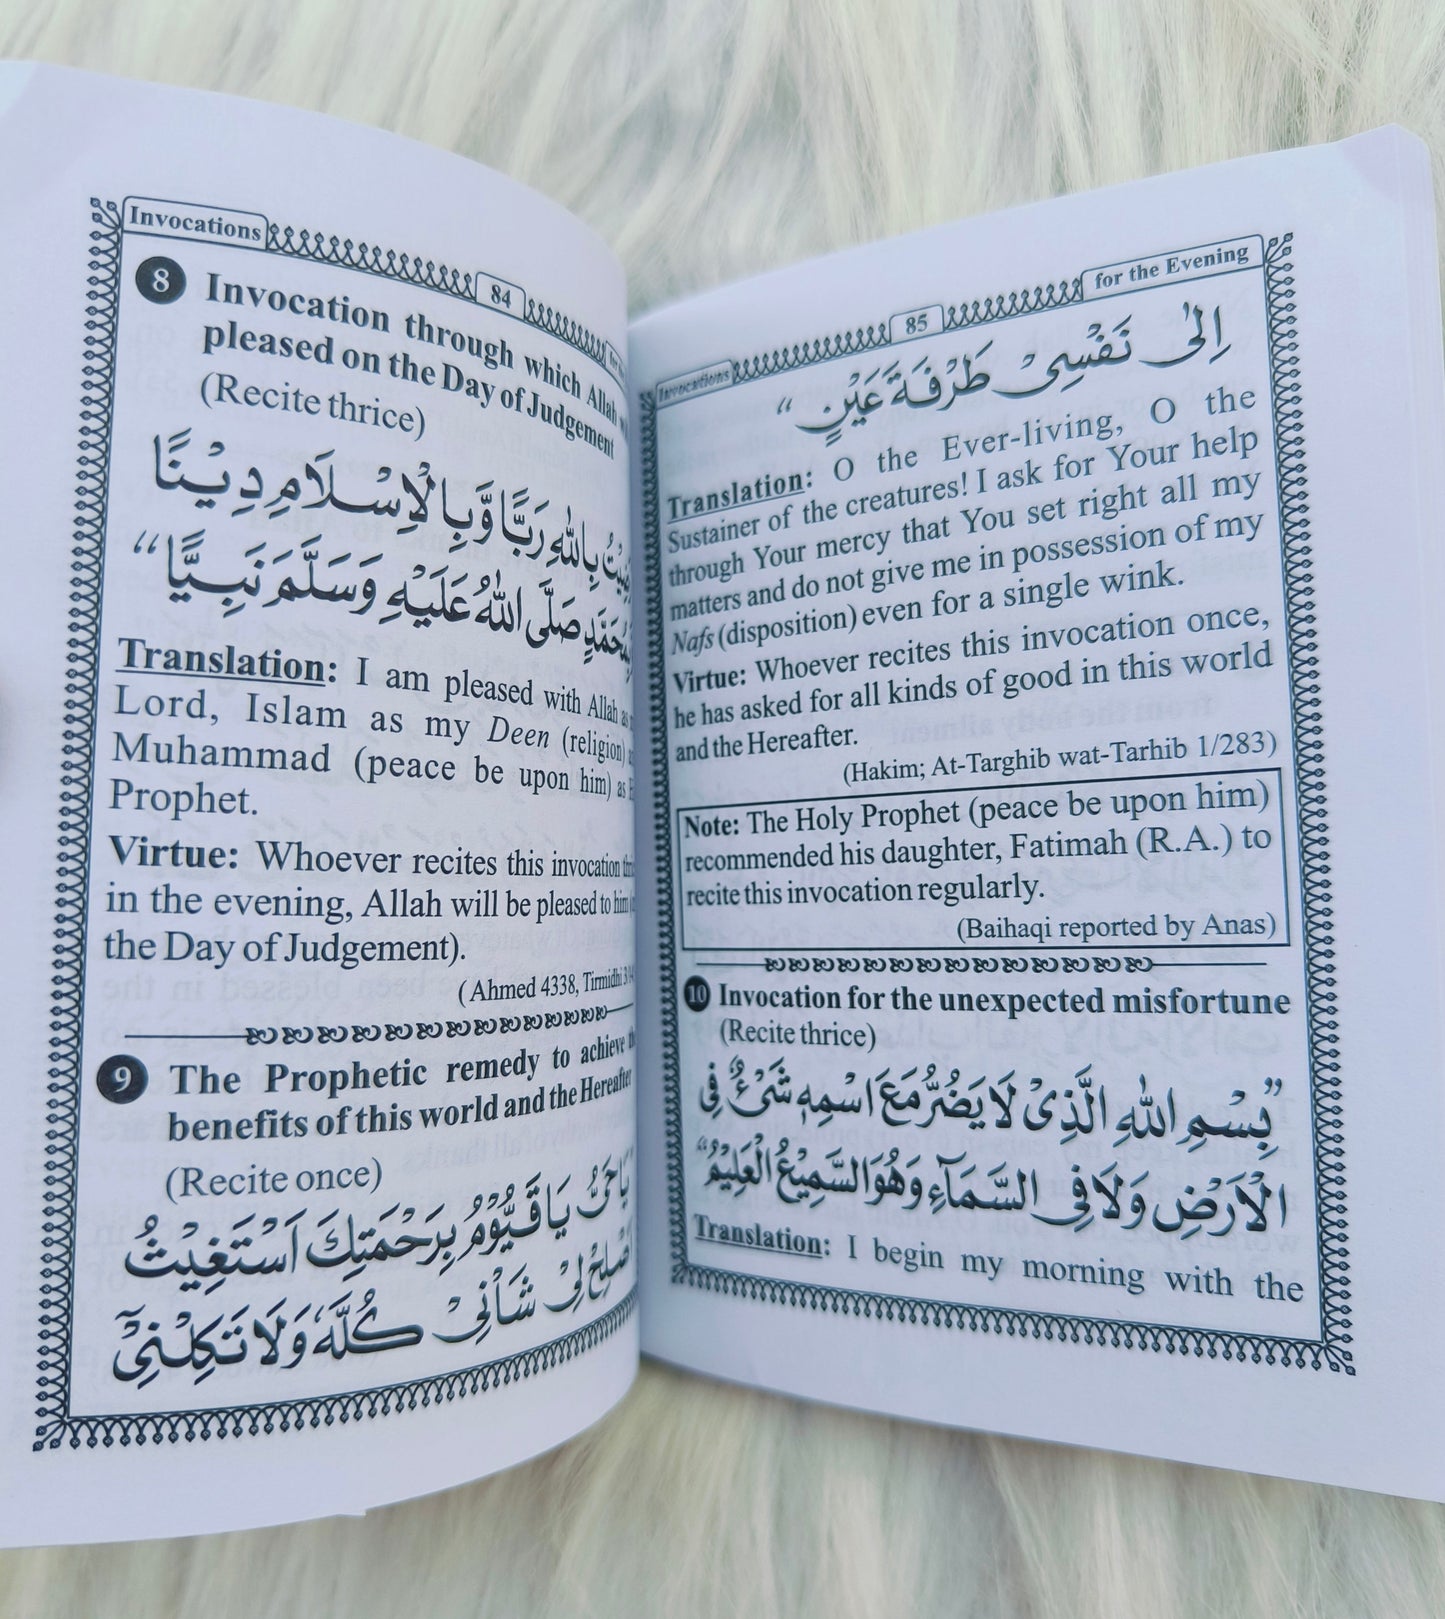 Invocations
84
8 Invocation through which Allah
pleased on the Day of Judgement
(Recite thrice)
بِاللهِ رَبًّا وَّبِالْاِسْلَامِ دِيْنًا
صَلَّى اللهُ عَلَيْهِ وَسَلَّمَ نَبِيًّا“
Translation: I am pleased with Allah as
Lord, Islam as my Deen (religion)
Muhammad (peace be upon him) as
Prophet.
Virtue: Whoever recites this invocation
in the evening, Allah will be pleased to him
the Day of Judgement).
(Ahmed 4338, Tirmidhi
9 The Prophetic remedy to achieve
benefits of this world and the Hereafter
(Recite once)
يَاحَىُّ يَاقَيُّوْمُ بِرَحْمَتِكَ اَسْتَغِيْثُ
اَصْلِحْ لِىْ شَأْنِىْ كُلَّهٗ وَلَا تَكِلْنِىْٓ
Invocations
85
for the Evening
اِلٰى نَفْسِىْ طَرْفَةَ عَيْنٍ“
Translation: O the Ever-living, O the
Sustainer of the creatures! I ask for Your help
through Your mercy that You set right all my
matters and do not give me in possession of my
Nafs (disposition) even for a single wink.
Virtue: Whoever recites this invocation once,
he has asked for all kinds of good in this world
and the Hereafter.
(Hakim; At-Targhib wat-Tarhib 1/283)
Note: The Holy Prophet (peace be upon him)
recommended his daughter, Fatimah (R.A.) to
recite this invocation regularly.
(Baihaqi reported by Anas)
10 Invocation for the unexpected misfortune
(Recite thrice)
”بِسْمِ اللهِ الَّذِىْ لَا يَضُرُّ مَعَ اسْمِهٖ شَىْءٌ فِى
الْاَرْضِ وَلَا فِى السَّمَآءِ وَهُوَ السَّمِيْعُ الْعَلِيْمُ“
Translation: I begin my morning with the